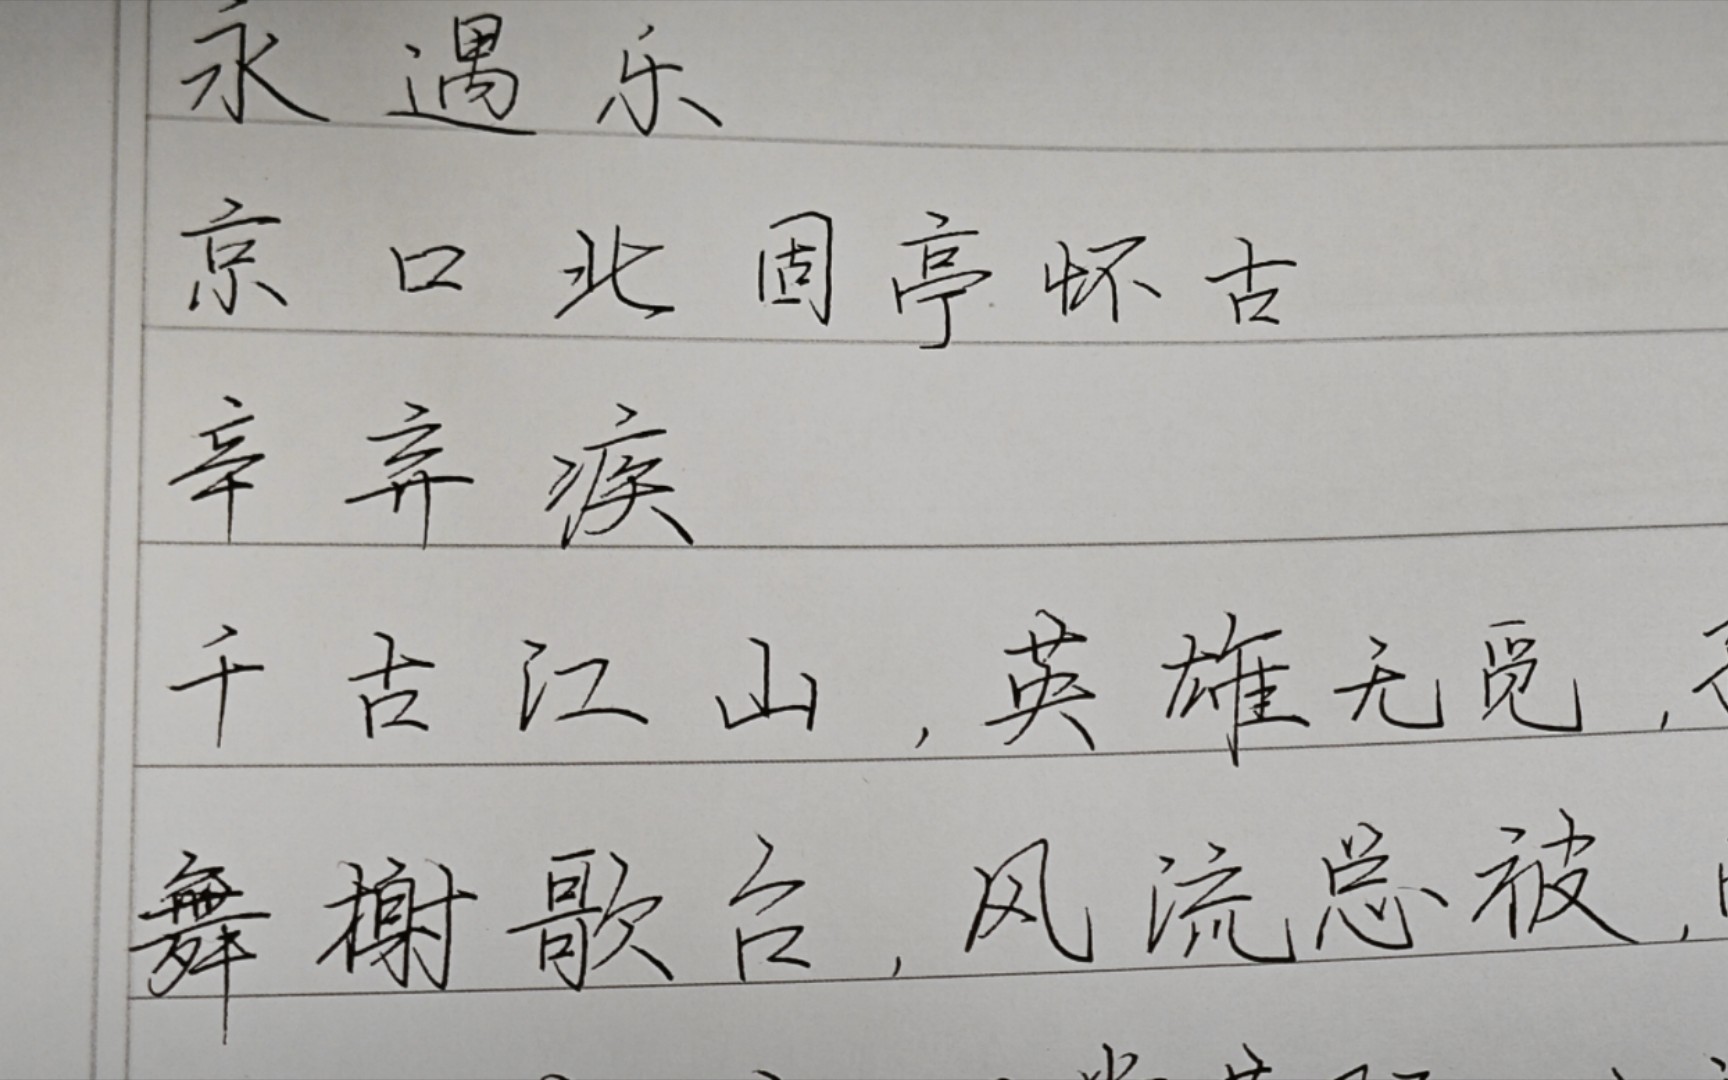 永遇乐
京口北固亭怀古
辛弃疾
千古江山,英雄无觅,
舞榭歌台,风流总被,